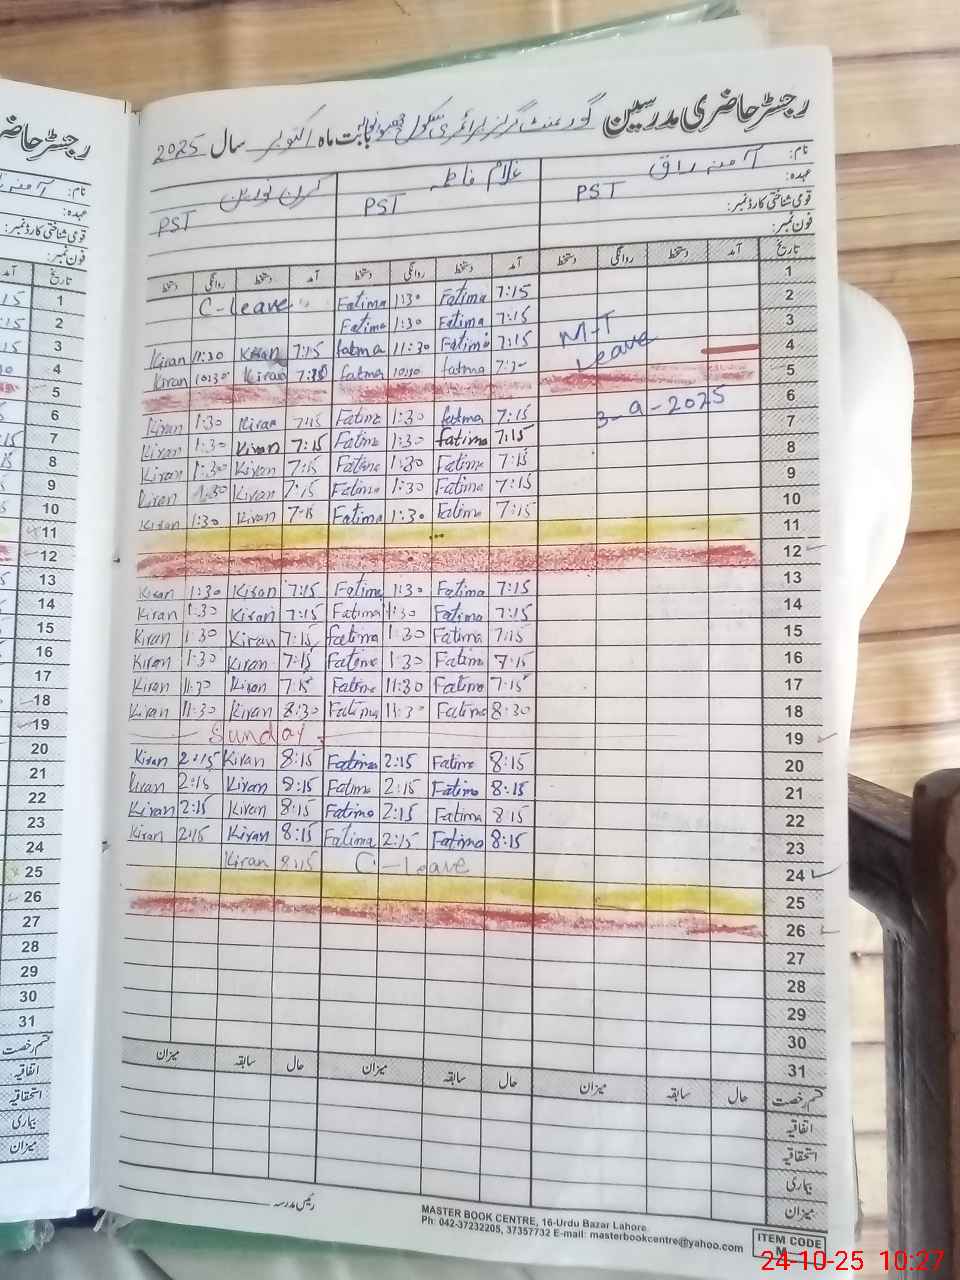 رجسٹر حاضری مدرسین گورنمنٹ گرلز پرائمری سکول بابت ماہ اکتوبر سال 2025
نام: غلام فاطمہ
عہدہ: PST PST PST
قومی شناختی کارڈ نمبر:
فون نمبر:
تاریخ آمد دستخط روانگی دستخط آمد دستخط روانگی دستخط آمد دستخط روانگی دستخط
1
C-Leave Fatima 1:30 Fatima 7:15 2
Fatima 1:30 Fatima 7:15 M-T 3
Kiran 11:30 Kiran 7:15 fatma 11:30 Fatima 7:15 Leave 4
Kiran 10:30 Kiran fatma fatma 5
6
Kiran 1:30 Kiran 7:15 Fatima 1:30 fatma 7:15 3-9-2025 7
Kiran 1:30 Kiran 7:15 Fatima 1:30 fatima 7:15 8
Kiran 1:30 Kiran 7:15 Fatima 1:30 Fatima 7:15 9
Kiran 1:30 Kiran 7:15 Fatima 1:30 Fatima 7:15 10
Kiran 1:30 Kiran 7:15 Fatima 1:30 Fatima 7:15
11
12
Kiran 1:30 Kiran 7:15 Fatima 1:30 Fatima 7:15 13
Kiran 1:30 Kiran 7:15 Fatima 1:30 Fatima 7:15 14
Kiran 1:30 Kiran 7:15 fatima 1:30 Fatima 7:15 15
Kiran 1:30 Kiran 7:15 Fatima 1:30 Fatima 7:15 16
Kiran 11:30 Kiran 7:15 Fatima 11:30 Fatima 7:15 17
Kiran 11:30 Kiran 8:30 Fatima 11:30 Fatima 8:30 18
Sunday 19
Kiran 2:15 Kiran 8:15 Fatima 2:15 Fatima 8:15 20
Kiran 2:15 Kiran 8:15 Fatima 2:15 Fatima 8:15 21
Kiran 2:15 Kiran 8:15 Fatima 2:15 Fatima 8:15 22
Kiran 2:15 Kiran 8:15 Fatima 2:15 Fatima 8:15 23
Kiran 8:15 C-Leave 24
25
26
27
28
29
30
31
قسم رخصت حال سابقہ میزان حال سابقہ میزان حال سابقہ میزان
اتفاقیہ
استحقاقیہ
بیماری
میزان
رئیس مدرسہ
MASTER BOOK CENTRE, 16-Urdu Bazar Lahore.
Ph: 042-37232205, 37357732 E-mail: masterbookcentre@yahoo.com
ITEM CODE
M
رجسٹر حاضری
نام:
عہدہ:
قومی شناختی کارڈ نمبر:
فون نمبر:
تاریخ آمد
1
2
3
4
5
6
7
8
9
10
11
12
13
14
15
16
17
18
19
20
21
22
23
24
25
26
27
28
29
30
31
قسم رخصت
اتفاقیہ
استحقاقیہ
بیماری
میزان
24-10-25 10:27